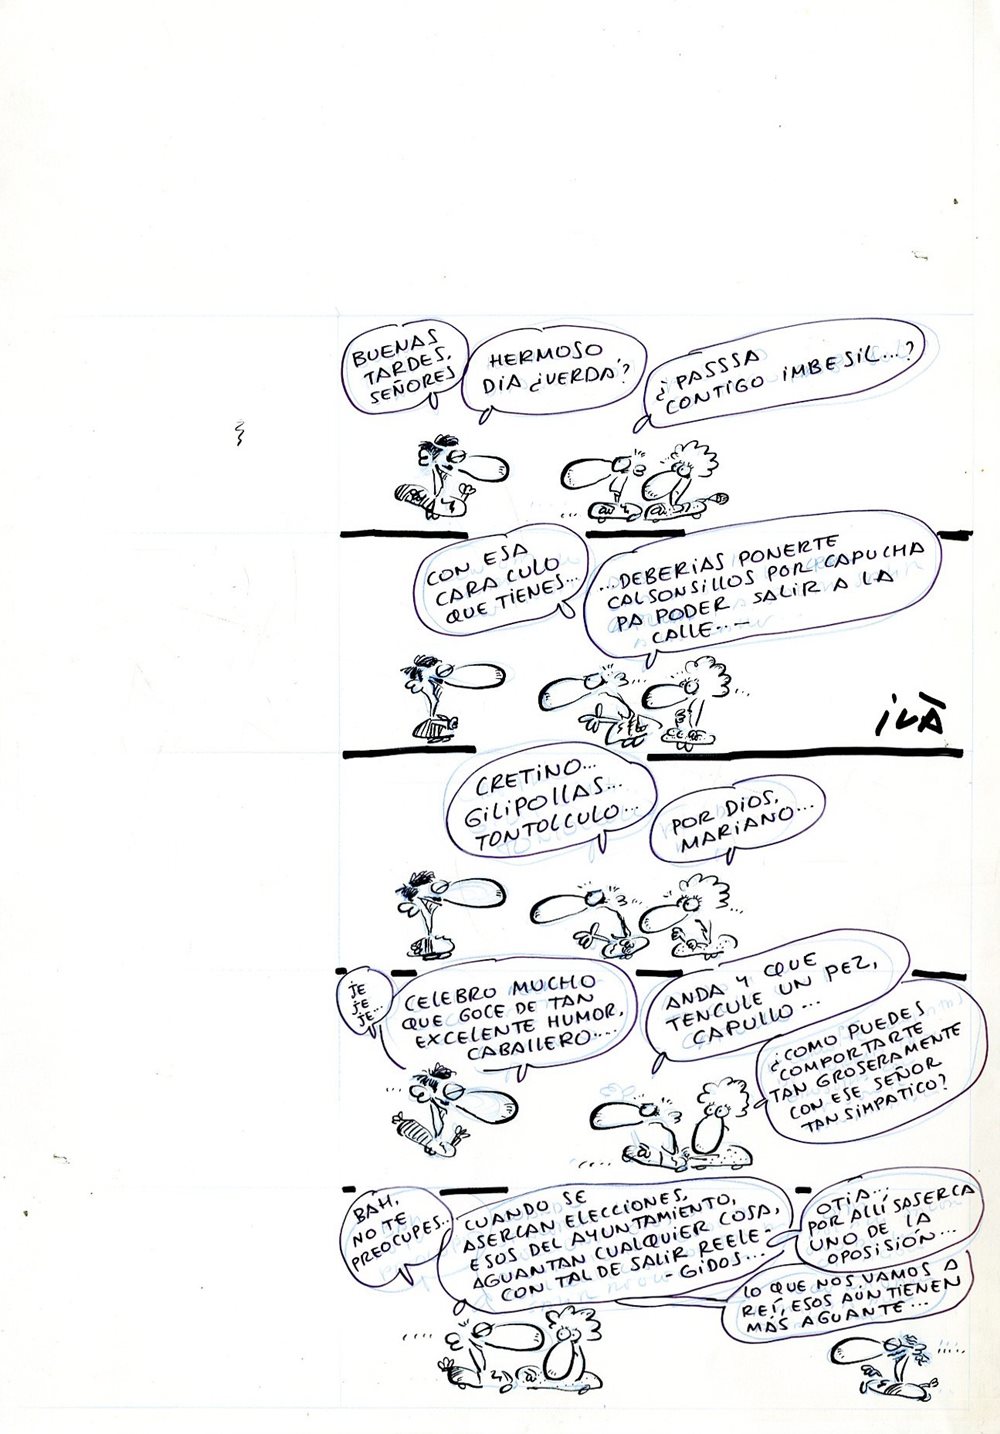 BUENAS
TARDES,
SEÑORES
HERMOSO
DIA ¿VERDA'?
¿PASSSA
CONTIGO IMBESIL...?
CON ESA
CARA CULO
QUE TIENES...
...DEBERIAS PONERTE
CALSONSILLOS POR CAPUCHA
PA PODER SALIR A LA
CALLE...-
iVÀ
CRETINO...
GILIPOLLAS...
TONTOLCULO...
POR DIOS,
MARIANO...
JE
JE
JE...
CELEBRO MUCHO
QUE GOCE DE TAN
EXCELENTE HUMOR,
CABALLERO....
ANDA Y QUE
TENCULE UN PEZ,
CAPULLO...
¿COMO PUEDES
COMPORTARTE
TAN GROSERAMENTE
CON ESE SEÑOR
TAN SIMPATICO?
BAH,
NO TE
PREOCUPES...
CUANDO SE
ASERCAN ELECCIONES,
ESOS DEL AYUNTAMIENTO,
AGUANTAN CUALQUIER COSA,
CON TAL DE SALIR REELE-
-GIDOS...
OTIA...
POR ALLÍ SASERCA
UNO DE LA
OPOSISIÓN...
LO QUE NOS VAMOS A
REÍ, ESOS AÚN TIENEN
MAS AGUANTE...